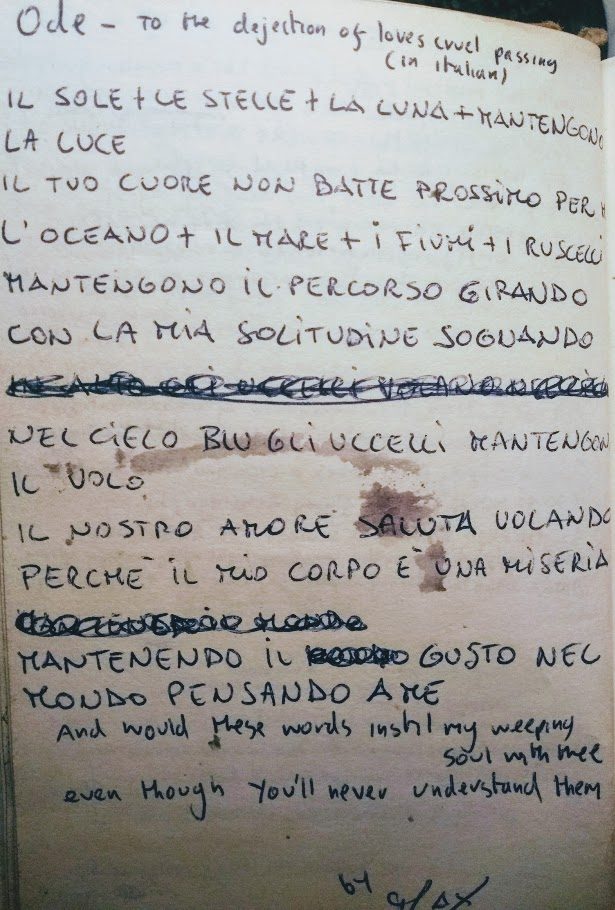 Ode - To the dejection of loves cruel passing
(in italian)
IL SOLE + LE STELLE + LA LUNA + MANTENGONO
LA LUCE
IL TUO CUORE NON BATTE PROSSIMO PER
L'OCEANO + IL MARE + I FIUMI + I RUSCELLI
MANTENGONO IL PERCORSO GIRANDO
CON LA MIA SOLITUDINE SOGNANDO
NEL CIELO BLU GLI UCCELLI MANTENGON
IL VOLO
IL NOSTRO AMORE SALUTA VOLANDO
PERCHE IL MIO CORPO E UNA MISERIA
MANTENENDO IL GUSTO NEL
MONDO PENSANDO A ME
And would these words instil my weeping
soul with thee
even though You'll never understand them
by